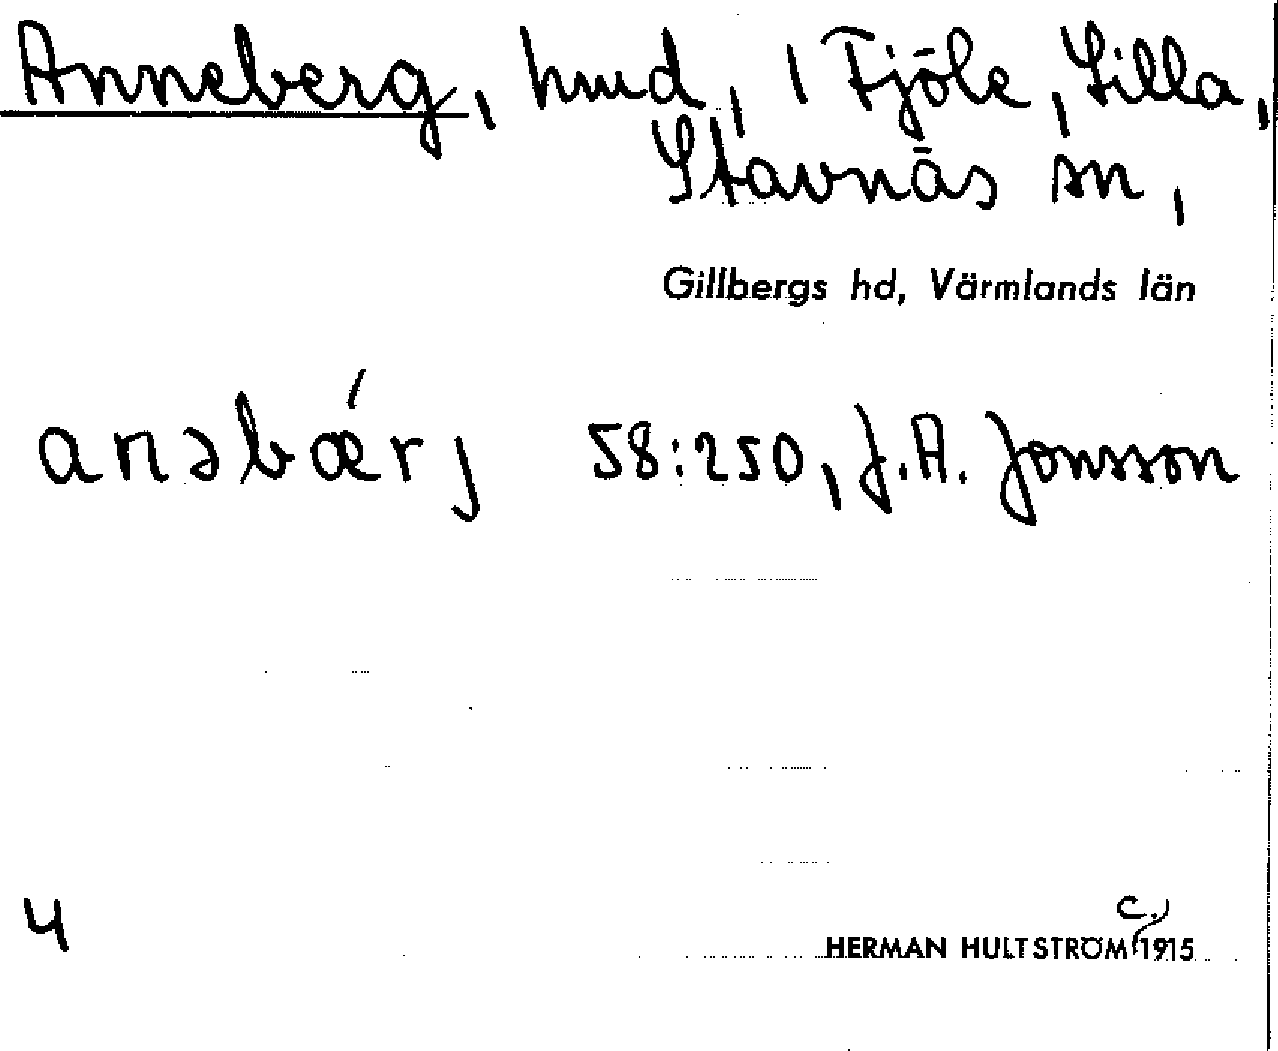 Anneberg, hmd, i Fjöle, Lilla,
Stavnäs sn,
Gillbergs hd, Värmlands län
anəbǽrj 58:250, J.A. Jonsson
4
c.
HERMAN HULTSTRÖM 1915